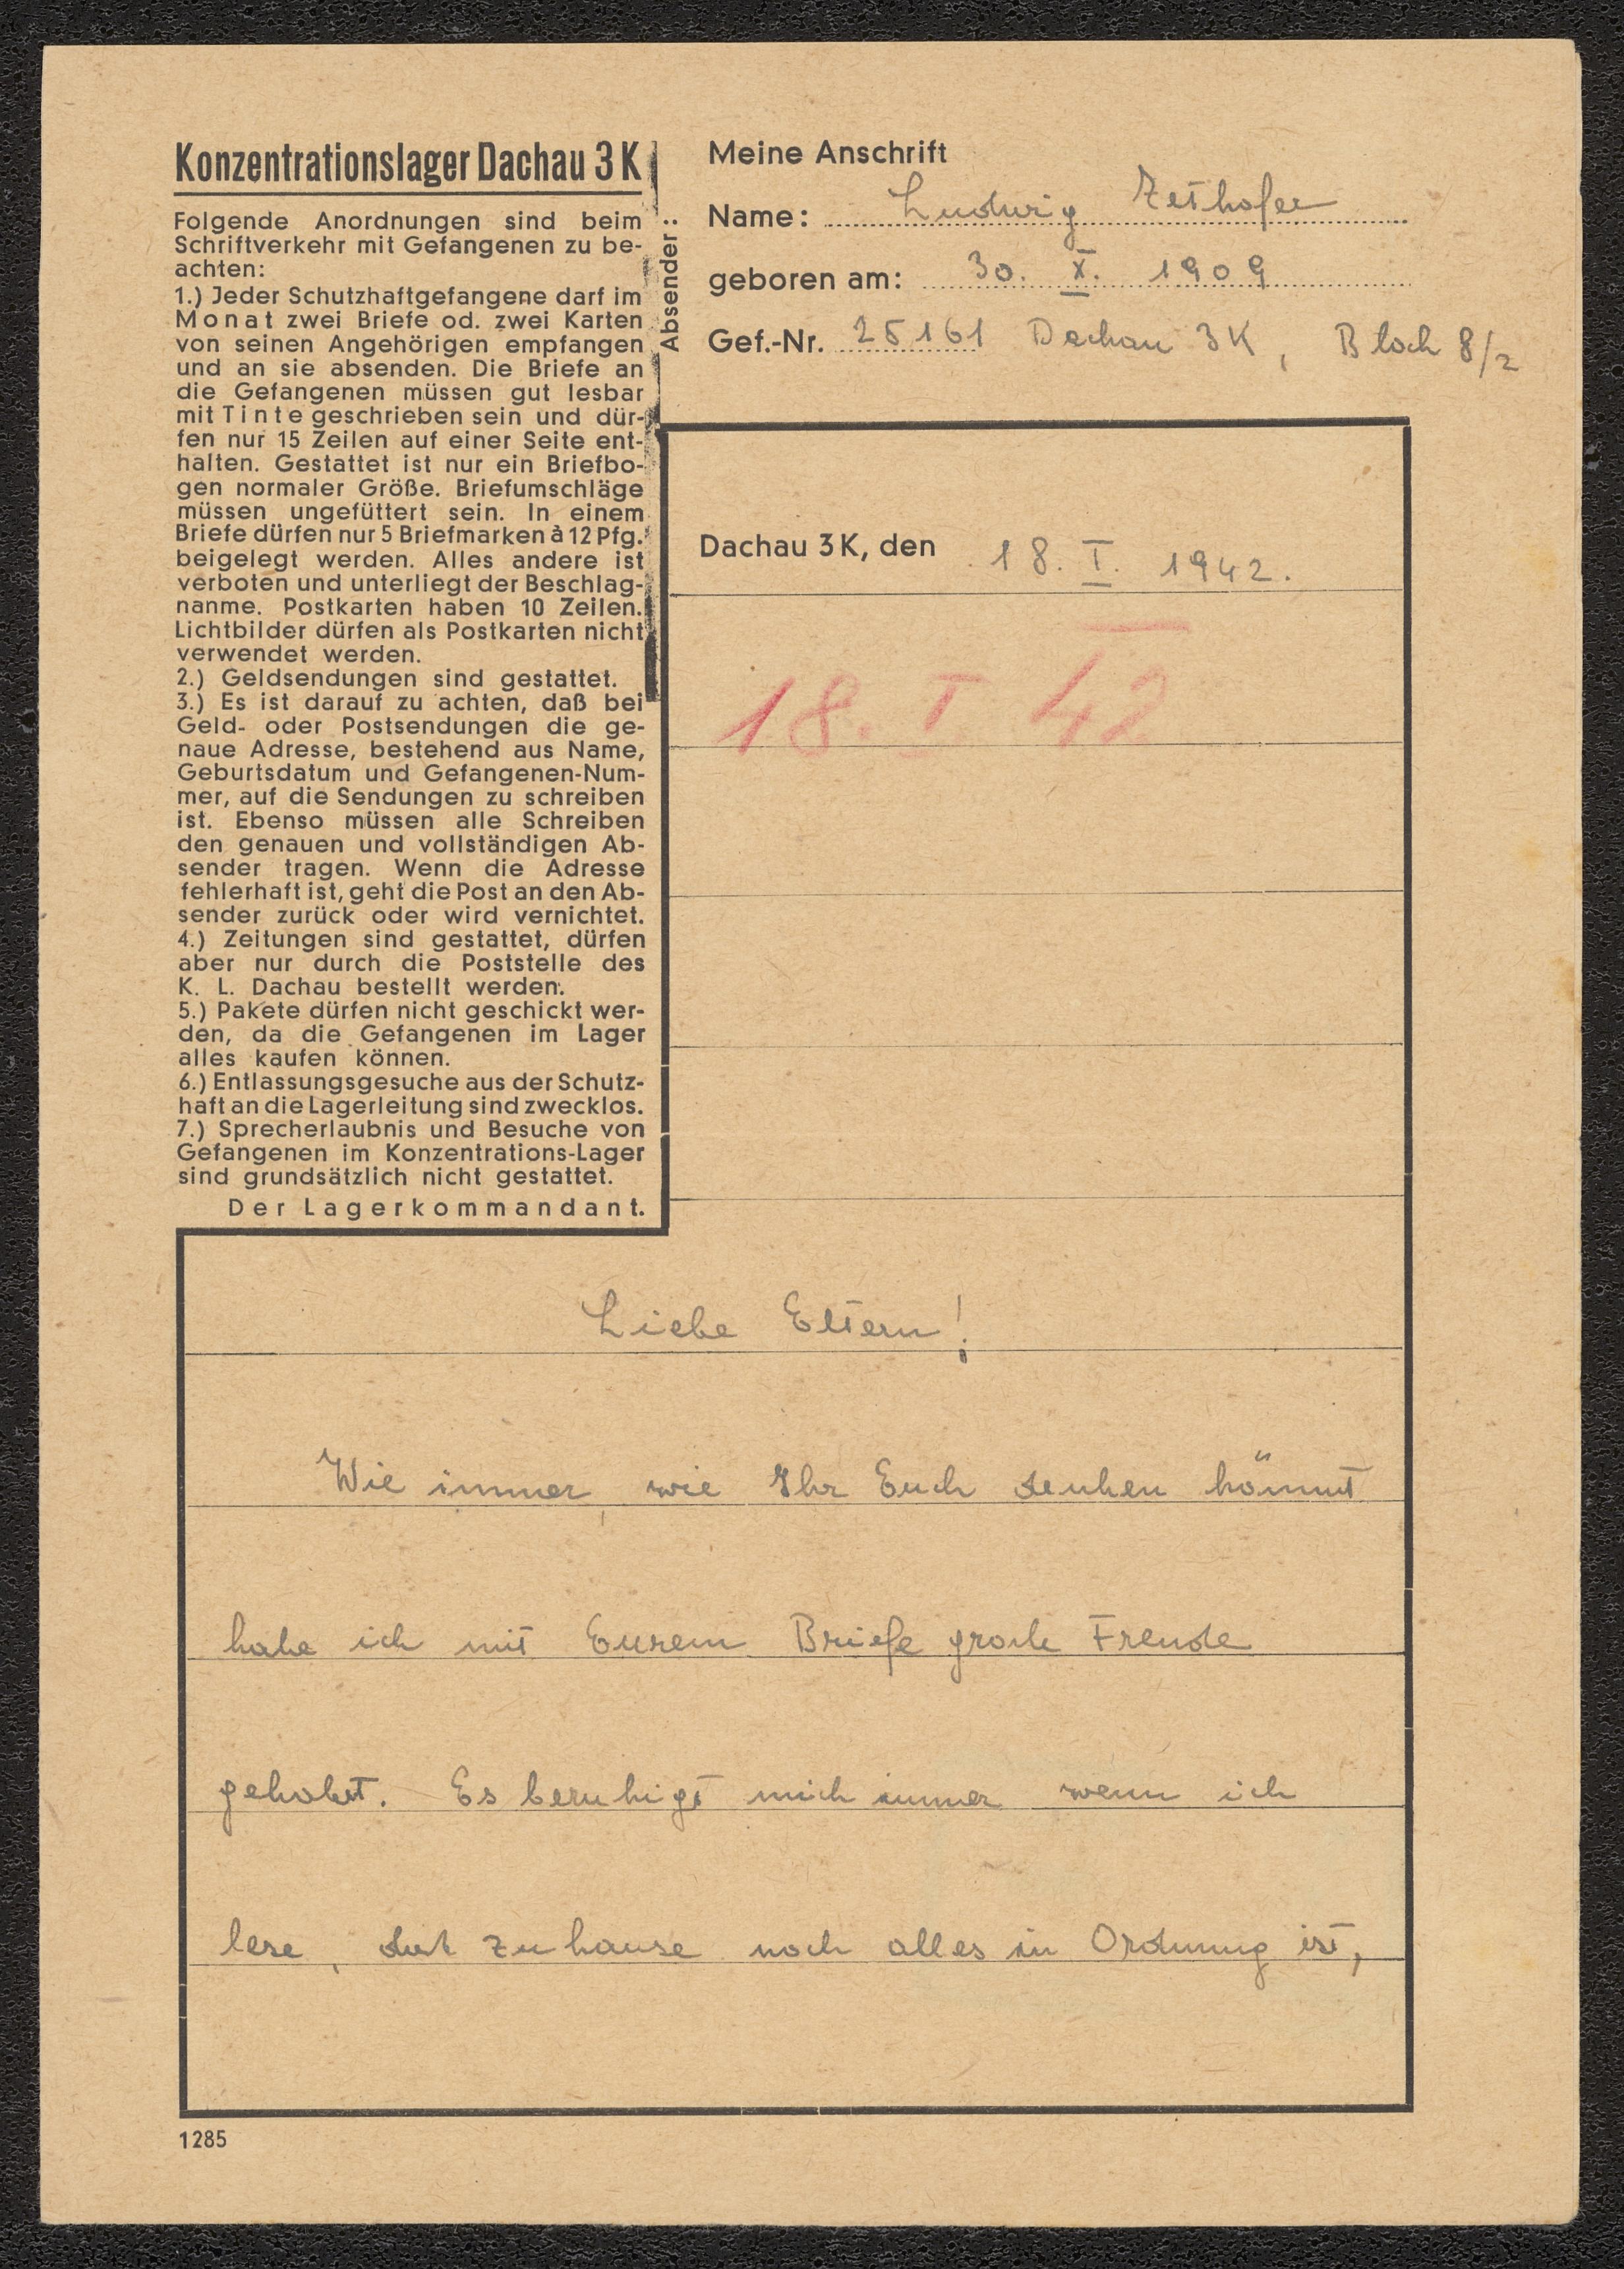 Konzentrationslager Dachau 3 K
Folgende Anordnungen sind beim
Schriftverkehr mit Gefangenen zu be-
achten:
1.) Jeder Schutzhaftgefangene darf im
Monat zwei Briefe od. zwei Karten
von seinen Angehörigen empfangen
und an sie absenden. Die Briefe an
die Gefangenen müssen gut lesbar
mit Tinte geschrieben sein und dür-
fen nur 15 Zeilen auf einer Seite ent-
halten. Gestattet ist nur ein Briefbo-
gen normaler Größe. Briefumschläge
müssen ungefüttert sein. In einem
Briefe dürfen nur 5 Briefmarken à 12 Pfg.
beigelegt werden. Alles andere ist
verboten und unterliegt der Beschlag-
nanme. Postkarten haben 10 Zeilen.
Lichtbilder dürfen als Postkarten nicht
verwendet werden.
2.) Geldsendungen sind gestattet.
3.) Es ist darauf zu achten, daß bei
Geld- oder Postsendungen die ge-
naue Adresse, bestehend aus Name,
Geburtsdatum und Gefangenen-Num-
mer, auf die Sendungen zu schreiben
ist. Ebenso müssen alle Schreiben
den genauen und vollständigen Ab-
sender tragen. Wenn die Adresse
fehlerhaft ist, geht die Post an den Ab-
sender zurück oder wird vernichtet.
4.) Zeitungen sind gestattet, dürfen
aber nur durch die Poststelle des
K. L. Dachau bestellt werden.
5.) Pakete dürfen nicht geschickt wer-
den, da die Gefangenen im Lager
alles kaufen können.
6.) Entlassungsgesuche aus der Schutz-
haft an die Lagerleitung sind zwecklos.
7.) Sprecherlaubnis und Besuche von
Gefangenen im Konzentrations-Lager
sind grundsätzlich nicht gestattet.
Der Lagerkommandant.
Absender:
Meine Anschrift
Name: Ludwig Zethofer
geboren am: 30. X. 1909
Gef.-Nr. 25161 Dachau 3K, Block 8/2
Dachau 3K, den 18. I. 1942.
18. I. 42
Liebe Eltern!
Wie immer, wie Ihr Euch denken könnt
habe ich mit Eurem Briefe große Freude
gehabt. Es beruhigt mich immer wenn ich
lese, daß zuhause noch alles in Ordnung ist,
1285